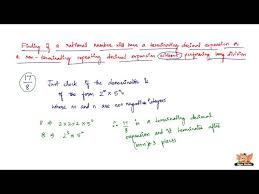 Finding if a rational number will have a terminating decimal expansion or
a non-terminating repeating decimal expansion without performing long division
17/8
Just check if the denominator is
of the form 2ᵐ × 5ⁿ
where m and n are not negative integers
8 = 2×2×2×5⁰
8 = 2³ × 5⁰
∴ 17/8 is a terminating decimal
expansion and it terminates after
3 places